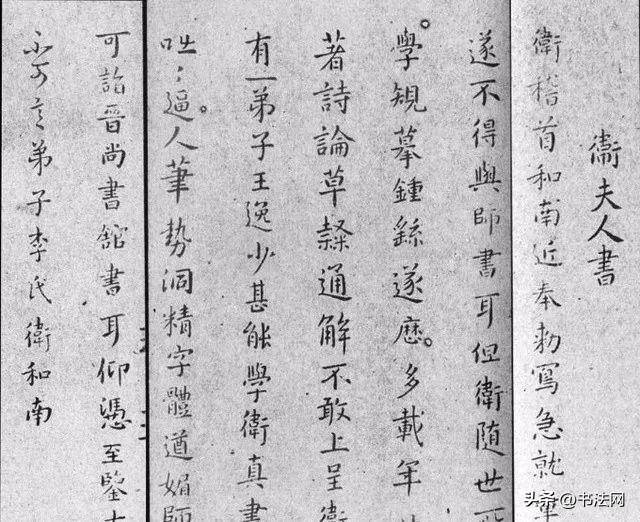 衛夫人書
衛稽首和南近奉勅寫急就章
遂不得與師書耳但衛隨世所
學規摹鍾繇遂歷多載年
著詩論草隸通解不敢上呈衛
有一弟子王逸少甚能學衛真書
咄〻逼人筆勢洞精字體遒媚師
可詣晉尚書舘書耳仰憑至鑒大
不可言弟子李氏衛和南
头条@书法网